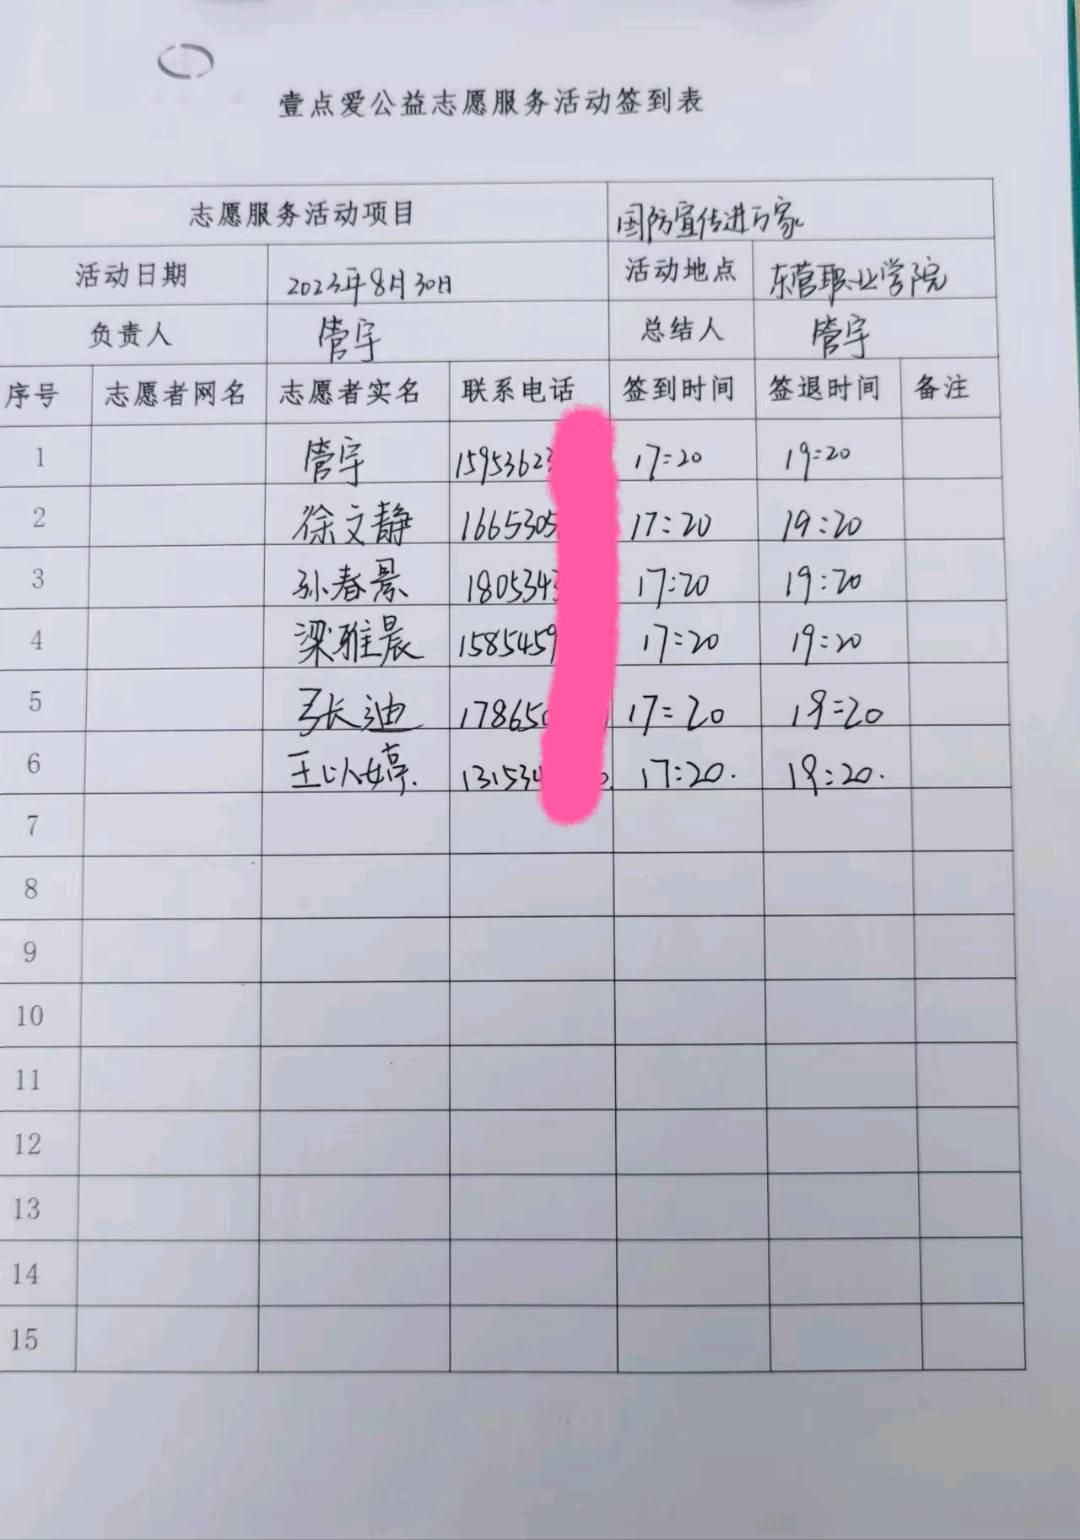 壹点爱公益志愿服务活动签到表
志愿服务活动项目 国防宣传进万家
活动日期 2023年8月30日 活动地点 东营职业学院
负责人 管宇 总结人 管宇
序号 志愿者网名 志愿者实名 联系电话 签到时间 签退时间 备注
1 管宇 1595362 17:20 19:20
2 徐文静 1665305 17:20 19:20
3 孙春景 1805343 17:20 19:20
4 梁雅晨 1585459 17:20 19:20
5 张迪 178650 17:20 19:20
6 王以婷. 131534 17:20. 19:20.
7
8
9
10
11
12
13
14
15